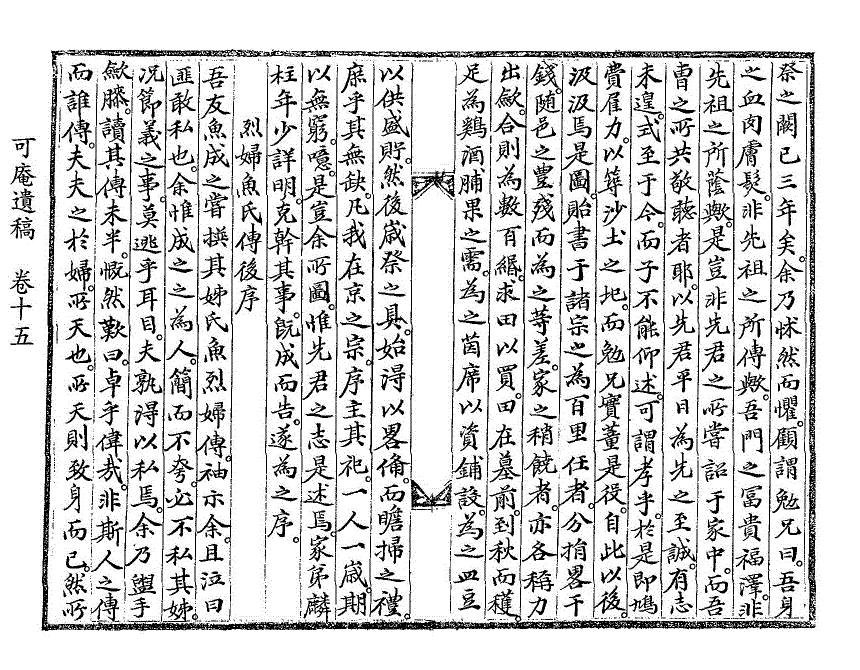 祭之闕已三年矣余乃怵然而懼顧謂勉兄曰吾身
之血肉膚髮非先祖之所傳歟吾門之冨貴福澤非
先祖之所蔭歟是豈非先君之所嘗詔于家中而吾
曺之所共敬聽者耶以先君平日為先之至誠有志
未遑式至于今而子不能仰述可謂孝乎於是即鳩
費雇力以葬沙土之地而勉兄實董是役自此以後
汲汲焉是圖貽書于諸宗之為百里任者分捐畧干
錢随邑之豊殘而為之等差家之稍饒者亦各稱力
出歛合則為數百緡求田以買田在墓前到秋而穫
足為鷄酒脯果之需為之茵席以資鋪設為之血豆
以供盛貯然後歲祭之具始得以畧俻而瞻掃之禮
庶乎其無缺凡我在京之宗序主其祀一人一歲期
以無窮噫是豈余所圖惟先君之志是述焉家弟麟
柱年少詳明克幹其事旣成而告遂為之序
烈婦魚氏傳後序
吾友魚成之嘗撰其姊氏魚烈婦傳袖示余且泣曰
匪敢私也余惟成之之為人簡而不夸必不私其姊
况節義之事莫逃乎耳目夫孰得以私焉余乃盥手
歛膝讀其傳未半慨然歎曰卓乎偉哉非斯人之傳
而誰傳夫夫之於婦所天也所天則致身而已然所
可庵遺稿 卷十五